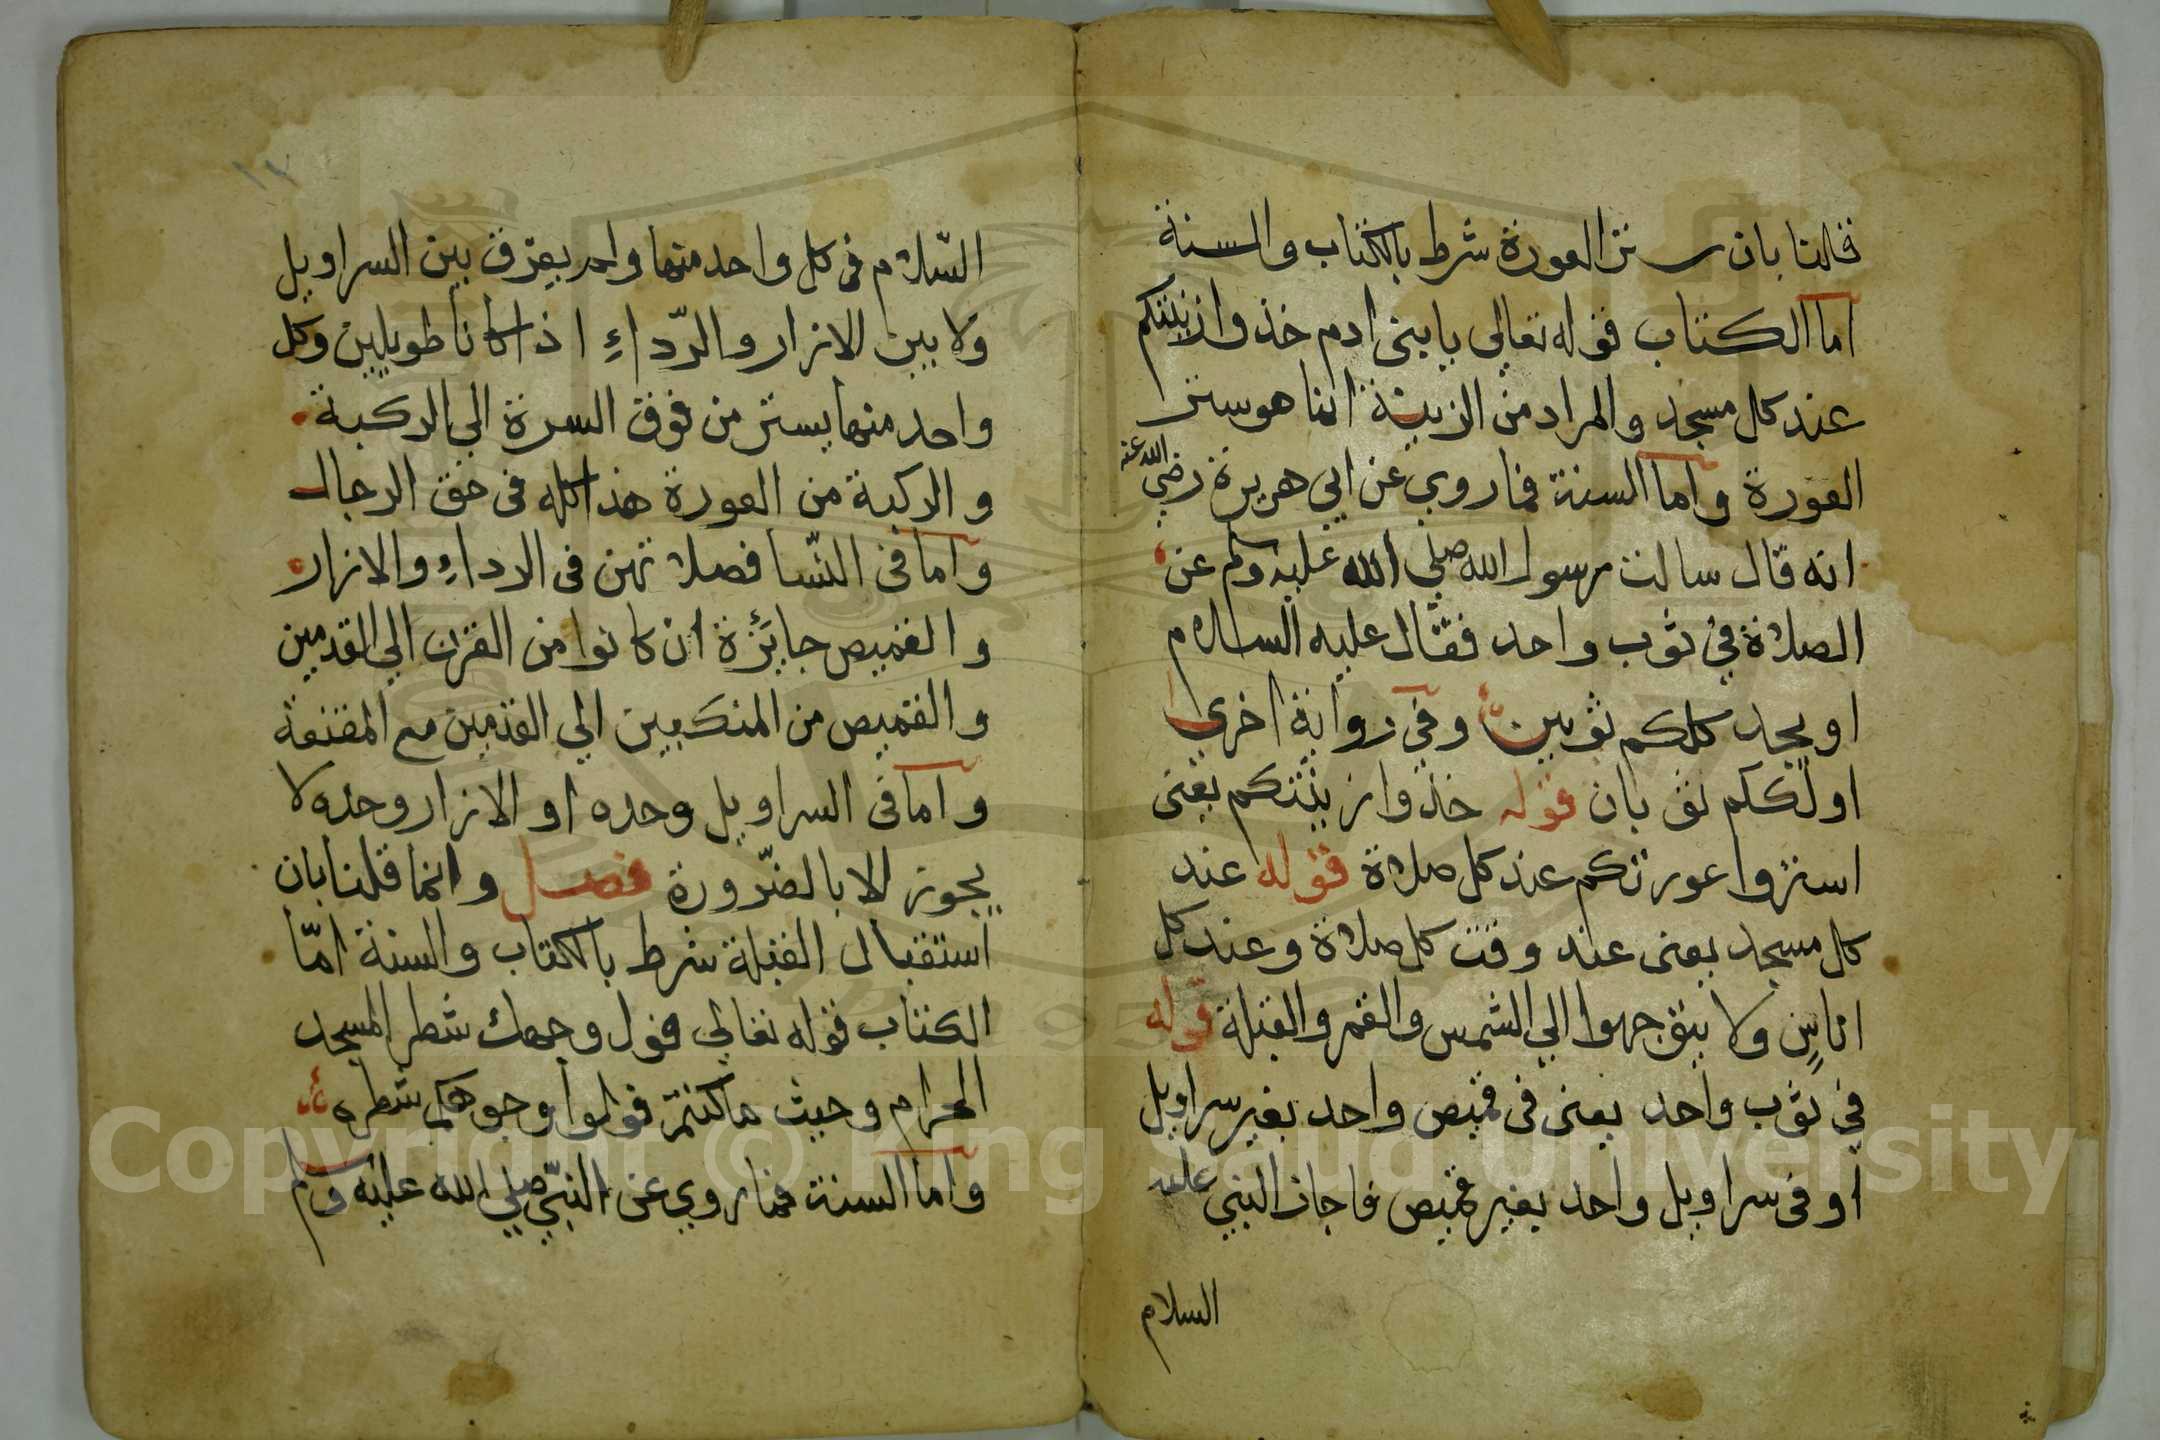 قلنا بان ستر العورة شرط بالكتاب والسنة
اما الكتاب قوله تعالي يا بني ادم خذوا زينتكم
عند كل مسجد والمراد من الزينة انما هو ستر
العورة واما السنة فما روي عن ابي هريرة رضي الله عنه
انه قال سالت رسول الله صلي الله عليه وسلم عن
الصلاة في ثوب واحد فقال عليه السلام
او يجد كلكم ثوبين وفي رواية اخري
اولكلكم ثوبان قوله خذوا زينتكم يعني
استروا عورتكم عند كل صلاة قوله عند
كل مسجد يعني عند وقت كل صلاة وعند كل
اناس ولا يتوجهوا الي الشمس والقمر والقبلة قوله
في ثوب واحد يعني في قميص واحد بغير سراويل
او في سراويل واحد بغير قميص فاجاز النبي عليه
السلام
١٧
السّلام في كل واحد منهما ولم يفرق بين السراويل
ولا بين الازار والرّداءِ اذا كانا طويلين وكل
واحد منهما يستر من فوق السرة الي الركبة
والركبة من العورة هذا كله في حق الرجال
واما في النّسا فصلاتهن في الرداءِ والازار
والقميص جايزة ان كانوا من القرن الي القدمين
والقميص من المنكبين الي القدمين مع المقنعة
واما في السراويل وحده او الازار وحده لا
يجوز الا بالضّرورة فصل وانما قلنا بان
استقبال القبلة شرط بالكتاب والسنة امّا
الكتاب قوله تعالي فول وجهك شطر المسجد
الحرام وحيث ما كنتم فولوا وجوهكم شطره
واما السنة فما روي عن النبّي صلي الله عليه وسلم
Copyright © King Saud University